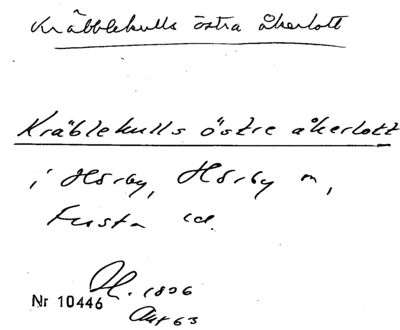 Kräbblekulls östra åkerlott
Kräblekulls östre åkerlott
i Hörby, Hörby
Frosta
Nr 10446
1806
Akt 63